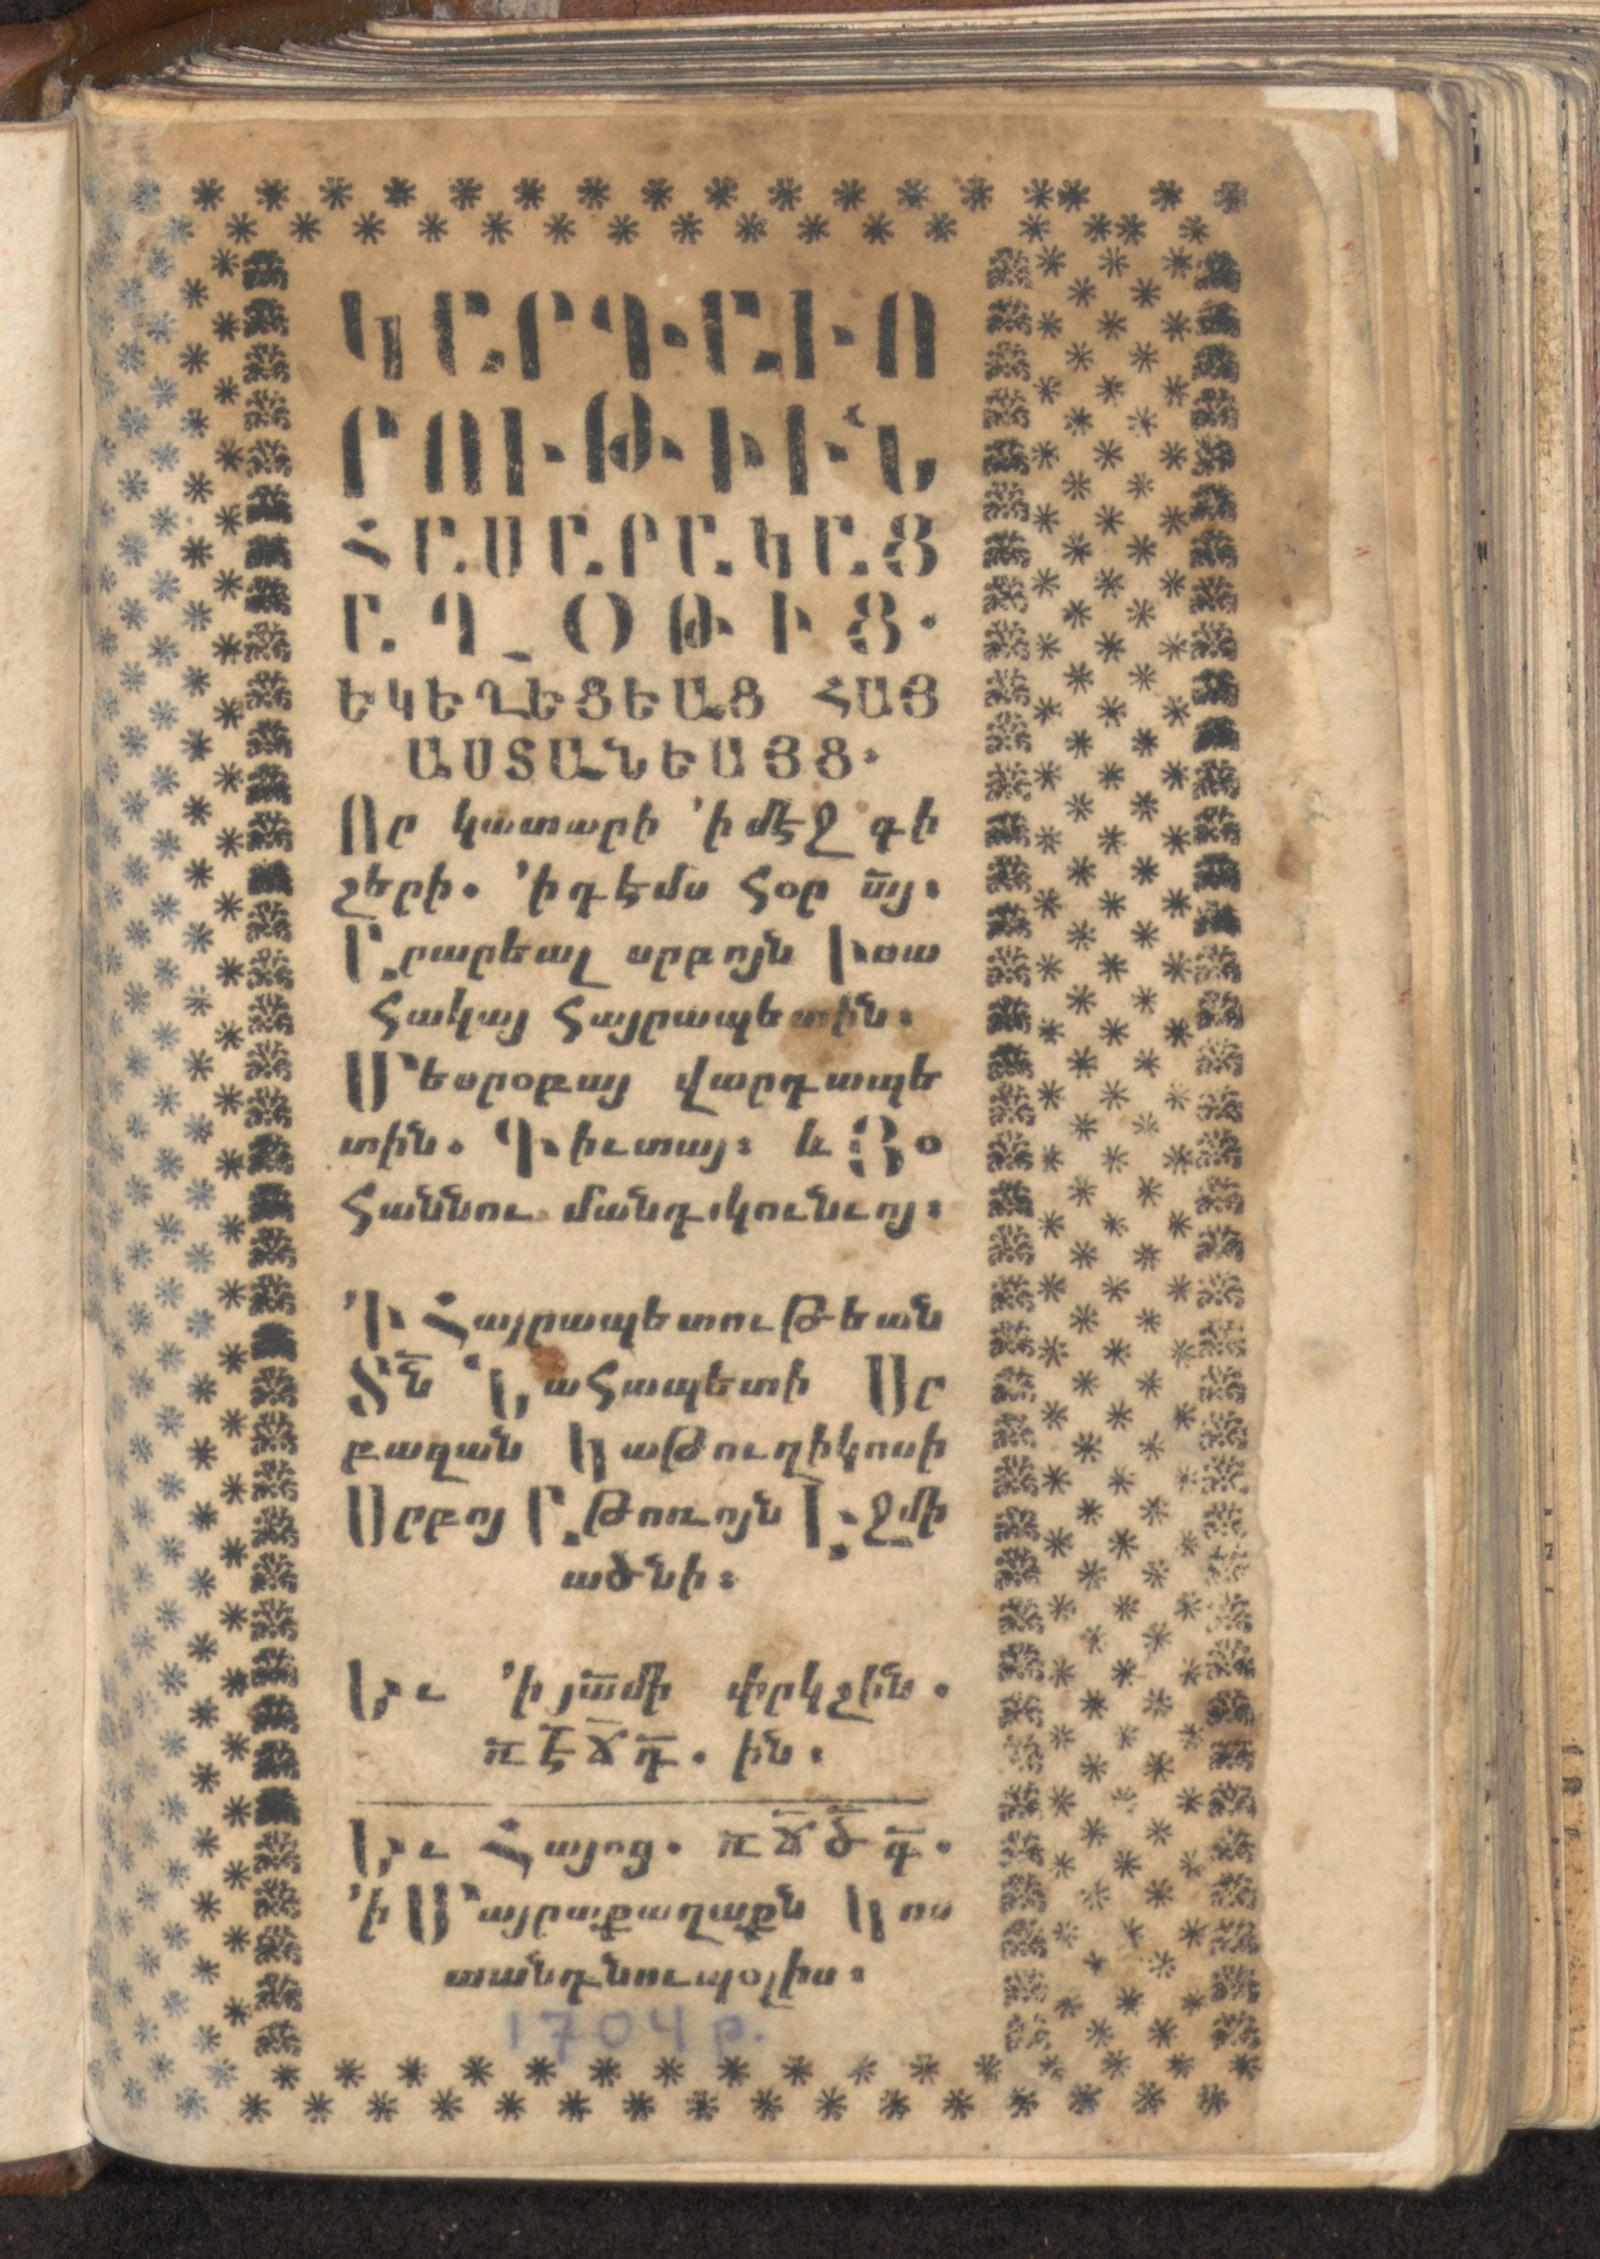 ԿԱՐԳԱՒՈ
ՐՈՒԹԻՒՆ
ՀԱՍԱՐԱԿԱՑ
ԱՂՕԹԻՑ.
ԵԿԵՂԵՑԵԱՑ ՀԱՅ
ԱՍՏԱՆԵԱՅՑ.
Որ կատարի ՚ի մէջ գի
շերի. ՚ի դէմս հօր ա̅յ։
Արարեալ սրբոյն Իսա
հակայ հայրապետին։
Մեսրօբայ վարդապե
տին. Գիւտայ։ և Յօ
հաննու մանդակունւոյ։
՚Ի Հայրապետութեան
Տն̅ Նահապետի Սր
բազան Կաթուղիկոսի
Սրբոյ Աթոռոյն Էջմի
ածնի։
Եւ ՚ի յա̅մի փրկչին.
ռ̅է̅ճ̅դ̅. ին։
Եւ Հայոց. ռ̅ճ̅ծ̅գ̅.
՚ի Մայրաքաղաքն Կոս
տանդնուպօլիս։
1704 թ.